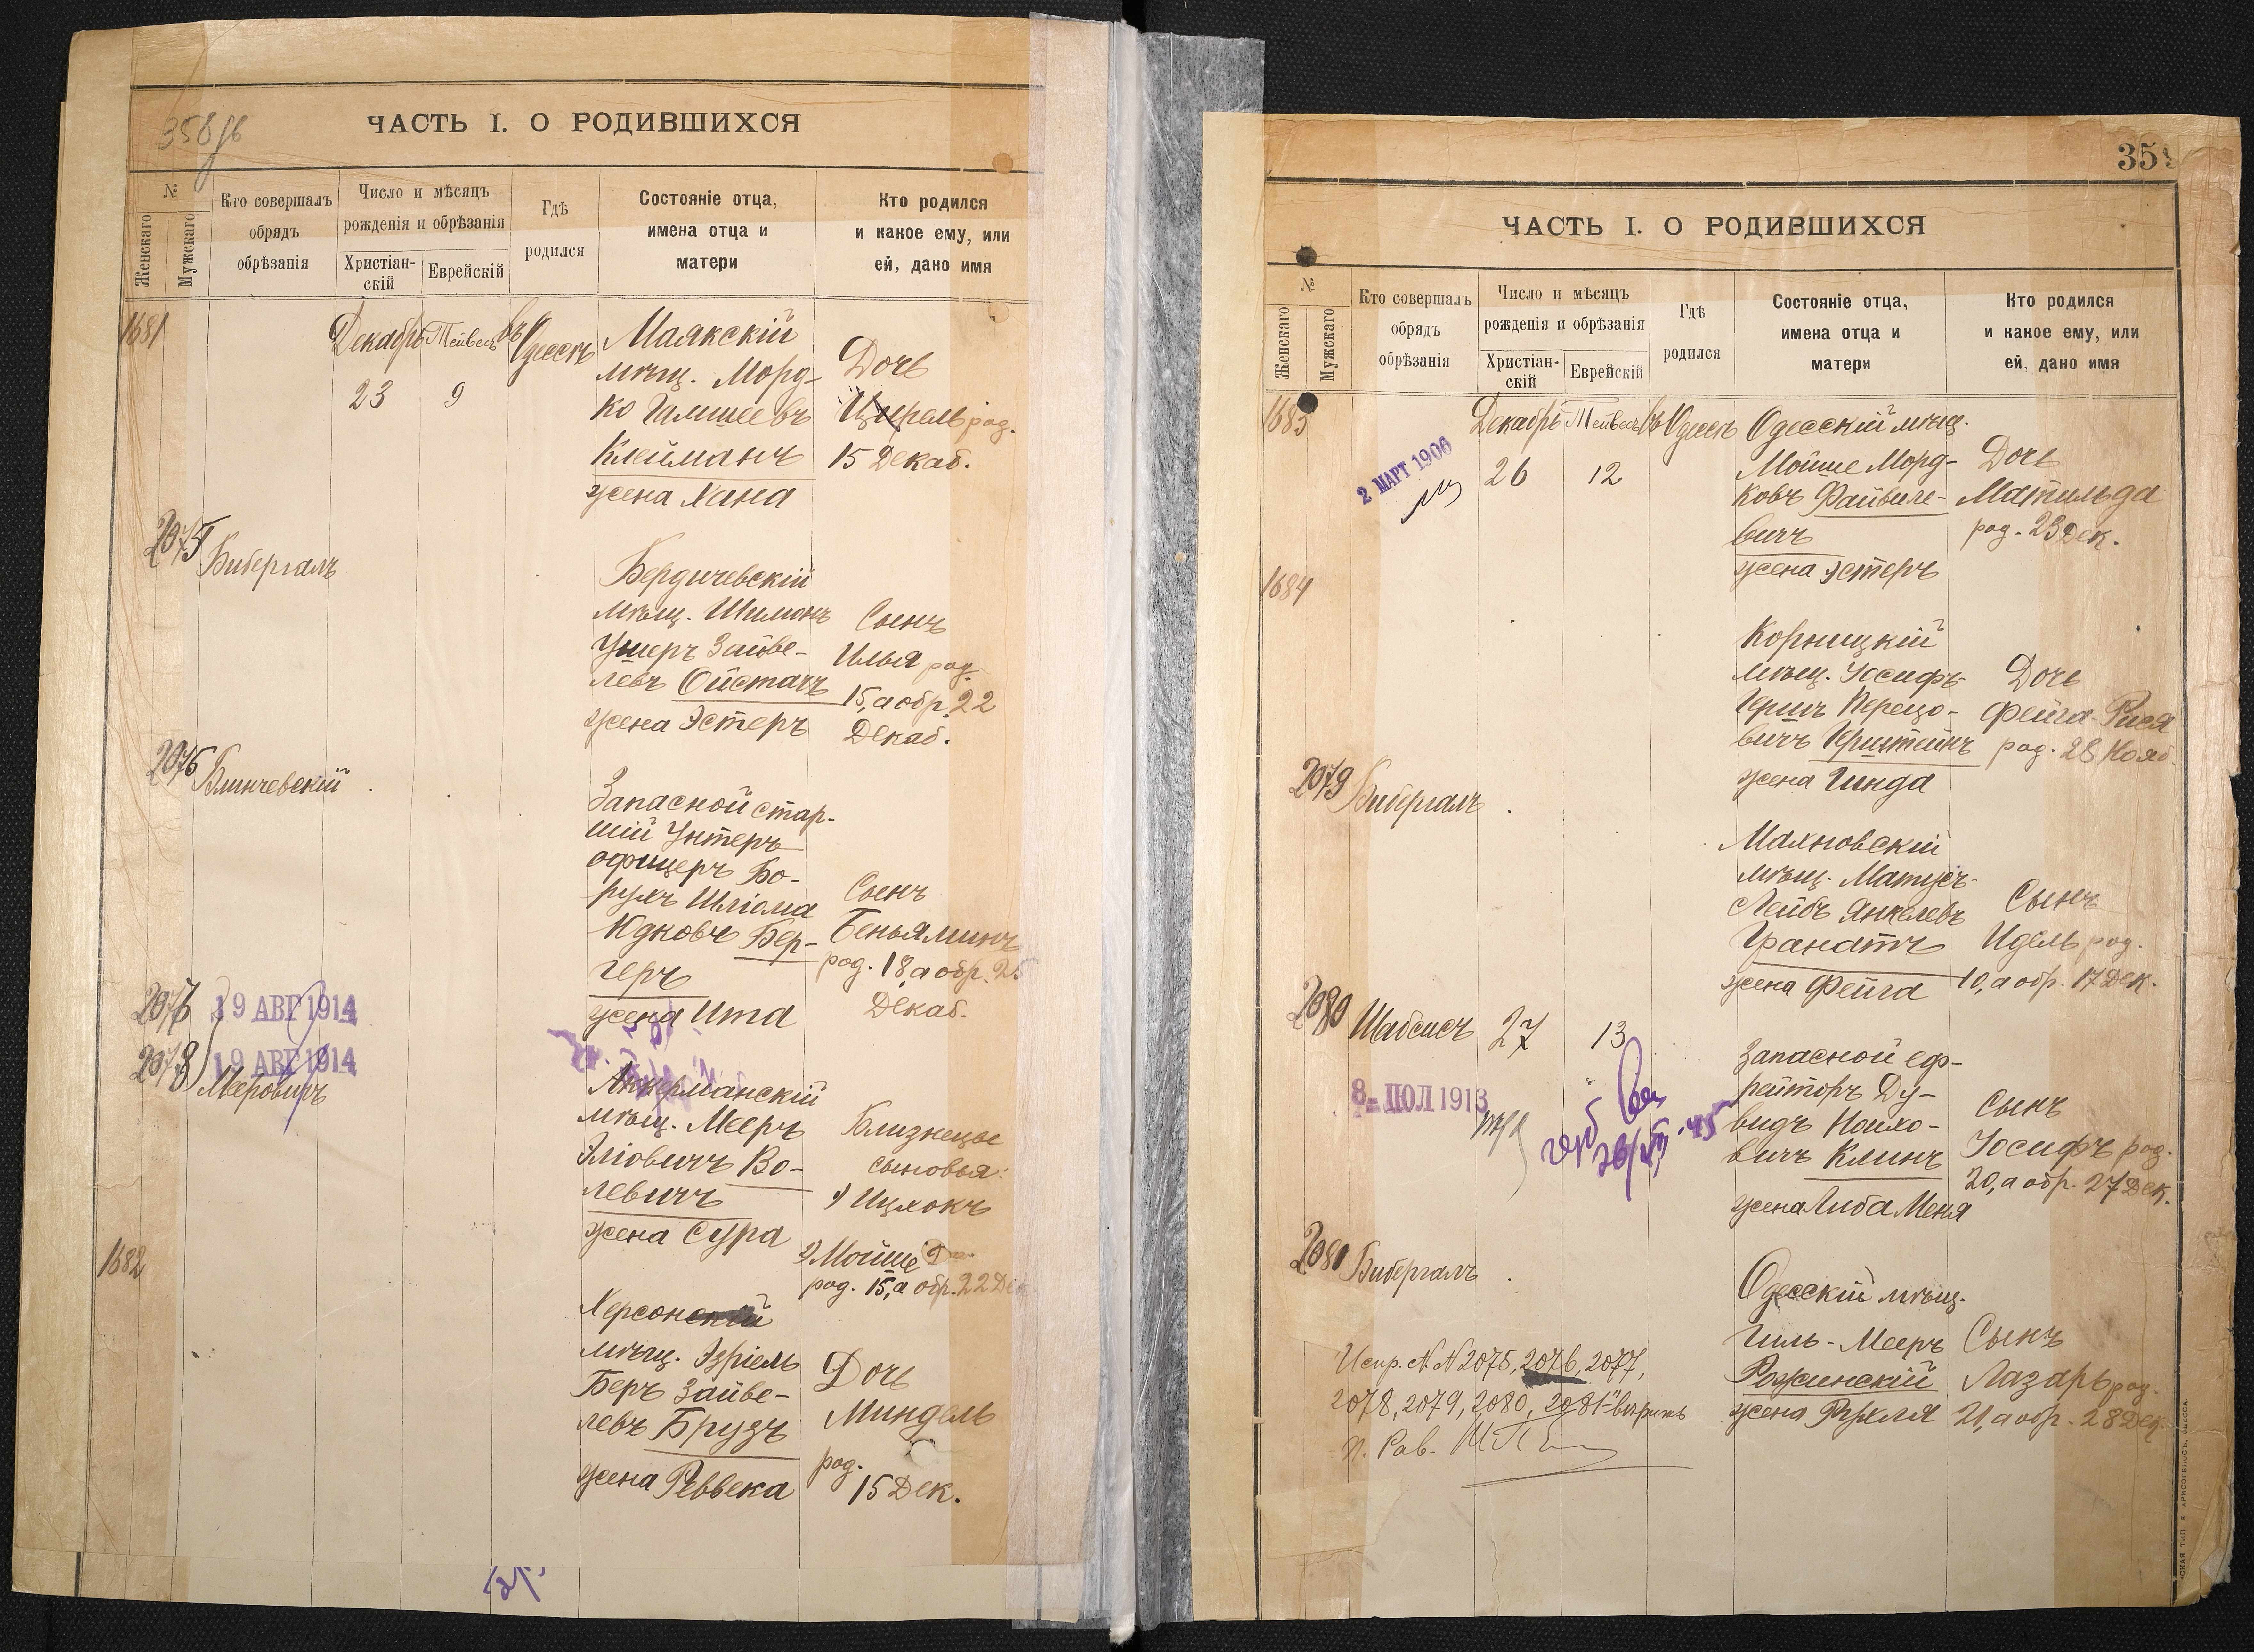 358 об
ЧАСТЬ I. О РОДИВШИХСЯ
№
Женскаго
Мужскаго
Кто совершалъ
обрядъ
обрѣзанія
Число и мѣсяцъ
рожденія и обрѣзанія
Христіан-
скій
Еврейскій
Гдѣ
родился
Состояніе отца,
имена отца и
матери
Кто родился
и какое ему, или
ей, дано имя
1681
Декабрь Тейвесъ въ Одессѣ
23 9
Маякскій
мѣщ. Морд-
ко Гамшеевъ
Клейманъ
жена Хана
Дочь
Цирель род.
15 Декаб.
2075
Бибергалъ
Бердичевскій
мѣщ. Шимонъ
Ушеръ Зайве-
левъ Ойстачъ
жена Эстеръ
Сынъ
Илья род.
15, а обр. 22
Декаб.
2076
Блинчевскій
Запасной стар-
шій Унтеръ
офицеръ Бо-
рухъ Шліома
Идковъ Бер-
геръ
жена Ита
Сынъ
Беньяминъ
род. 18, а обр. 25
Декаб.
2077
19 АВГ 1914
2078
19 АВГ 1914
Мееровичъ
Аккерманскій
мѣщ. Мееръ
Эліовичъ Во-
левичъ
жена Сура
Близнецы
сыновья:
1) Ицхокъ
2) Мойше
род. 15, а обр. 22 Дек
1682
Херсонскій
мѣщ. Эзріель
Беръ Зайве-
левъ Брузъ
жена Реввека
Дочь
Миндель
род.
15 Дек.
359
ЧАСТЬ I. О РОДИВШИХСЯ
№
Женскаго
Мужскаго
Кто совершалъ
обрядъ
обрѣзанія
Число и мѣсяцъ
рожденія и обрѣзанія
Христіан-
скій
Еврейскій
Гдѣ
родился
Состояніе отца,
имена отца и
матери
Кто родился
и какое ему, или
ей, дано имя
1683
2 МАРТ 1906
Декабрь Тейвесъ въ Одессѣ
26 12
Одесскій мѣщ.
Мойше Морд-
ковъ Файвиле-
вичъ
жена Эстеръ
Дочь
Матильда
род. 23 Дек.
1684
Корницкій
мѣщ. Іосифъ-
Гершъ Перецо-
вичъ Герштейнъ
жена Гинда
Дочь
Фейга-Рися
род. 28 Нояб.
2079
Бибергалъ
Махновскій
мѣщ. Матусъ-
Лейбъ Янкелевъ
Гранатъ
жена Фейга
Сынъ
Идель род.
10, а обр. 17 Дек.
2080
Шабсисъ
27 13
8 - ІЮЛ 1913
Запасной еф-
рейторъ Ду-
видъ Нахо-
вичъ Клинъ
жена Либа Меня
Сынъ
Іосифъ род.
20, а обр. 27 Дек.
2081
Бибергалъ
Одесскій мѣщ.
Гиль-Мееръ
Рожинскій
жена Рухля
Сынъ
Лазарь род.
21, а обр. 28 Дек.
Испр. N N 2075, 2076, 2077,
2078, 2079, 2080, 2081 "вѣрить
П. Рав.